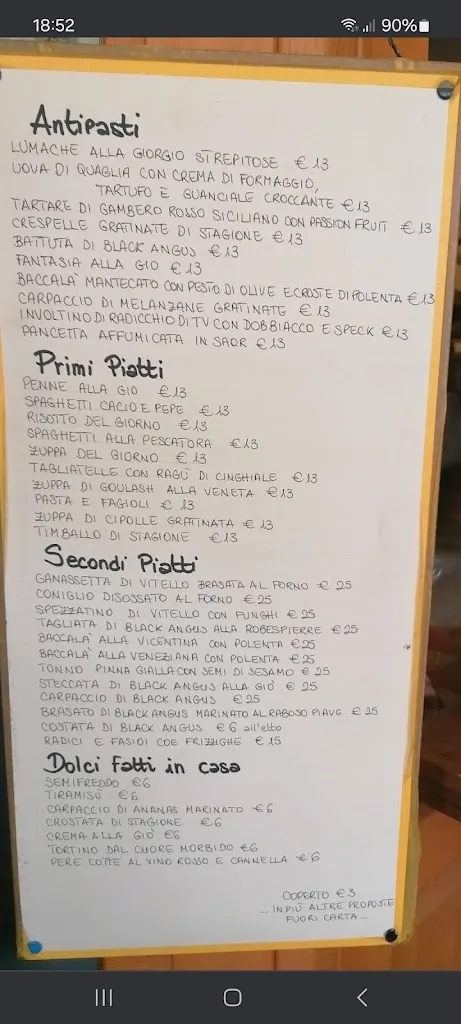 18:52
90%
Antipasti
LUMACHE ALLA GIORGIO STREPITOSE € 13
UOVA DI QUAGLIA CON CREMA DI FORMAGGIO,
TARTUFO E GUANCIALE CROCCANTE € 13
TARTARE DI GAMBERO ROSSO SICILIANO CON PASSION FRUIT € 13
CRESPELLE GRATINATE DI STAGIONE € 13
BATTUTA DI BLACK ANGUS € 13
FANTASIA ALLA GIO € 13
BACCALA' MANTECATO CON PESTO DI OLIVE E CROSTE DI POLENTA € 13
CARPACCIO DI MELANZANE GRATINATE € 13
INVOLTINO DI RADICCHIO DI TV CON DOBBIACCO E SPECK € 13
PANCETTA AFFUMICATA IN SAOR € 13
Primi Piatti
PENNE ALLA GIO € 13
SPAGHETTI CACIO E PEPE € 13
RISOTTO DEL GIORNO € 13
SPAGHETTI ALLA PESCATORA € 13
ZUPPA DEL GIORNO € 13
TAGLIATELLE CON RAGÙ DI CINGHIALE € 13
ZUPPA DI GOULASH ALLA VENETA € 13
PASTA E FAGIOLI € 13
ZUPPA DI CIPOLLE GRATINATA € 13
TIMBALLO DI STAGIONE € 13
Secondi Piatti
GANASSETTA DI VITELLO BRASATA AL FORNO € 25
CONIGLIO DISOSSATO AL FORNO € 25
SPEZZATINO DI VITELLO CON FUNGHI € 25
TAGLIATA DI BLACK ANGUS ALLA ROBESPIERRE € 25
BACCALA' ALLA VICENTINA CON POLENTA € 25
BACCALA' ALLA VENEZIANA CON POLENTA € 25
TONNO PINNA GIALLA CON SEMI DI SESAMO € 25
STECCATA DI BLACK ANGUS ALLA GIO' € 25
CARPACCIO DI BLACK ANGUS € 25
BRASATO DI BLACK ANGUS MARINATO AL RABOSO PIAVE € 25
COSTATA DI BLACK ANGUS € 6 all'etto
RADICI E FASIOI COE FRIZZIGHE € 15
Dolci fatti in casa
SEMIFREDDO € 6
TIRAMISÙ € 6
CARPACCIO DI ANANAS MARINATO € 6
CROSTATA DI STAGIONE € 6
CREMA ALLA GIO' € 6
TORTINO DAL CUORE MORBIDO € 6
PERE COTTE AL VINO ROSSO E CANNELLA € 6
COPERTO € 3
... IN PIÙ ALTRE PROPOSTE
FUORI CARTA ...